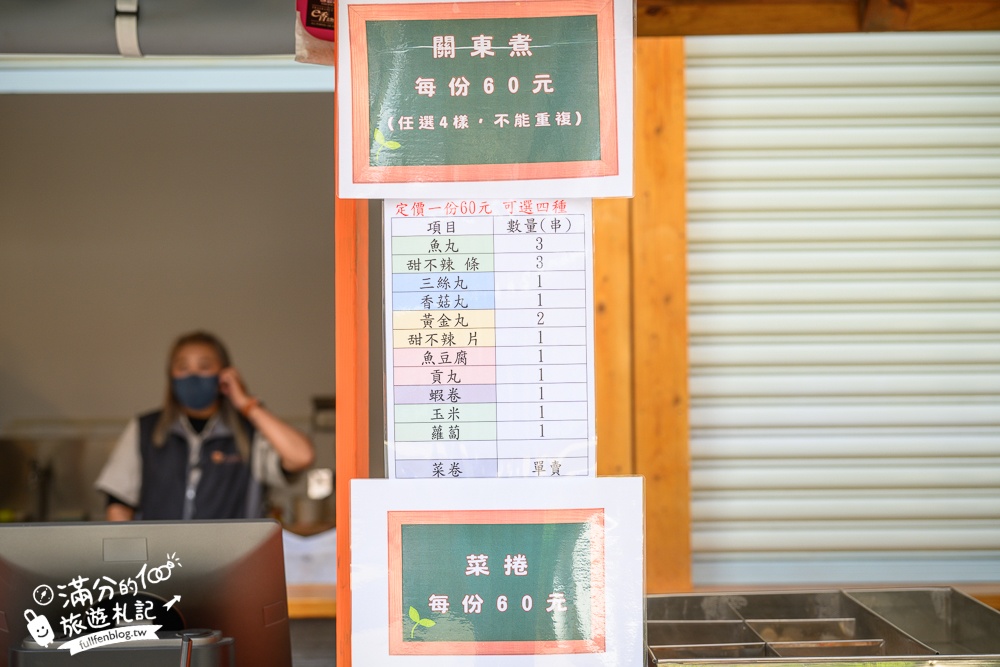 關東煮
每份60元
(任選4樣，不能重複)
定價一份60元 可選四種
項目 數量(串)
魚丸 3
甜不辣 條 3
三絲丸 1
香菇丸 1
黃金丸 2
甜不辣 片 1
魚豆腐 1
貢丸 1
蝦卷 1
玉米 1
蘿蔔 1
菜卷 單賣
菜捲
每份60元
滿分的
旅遊札記
fullfenblog.tw